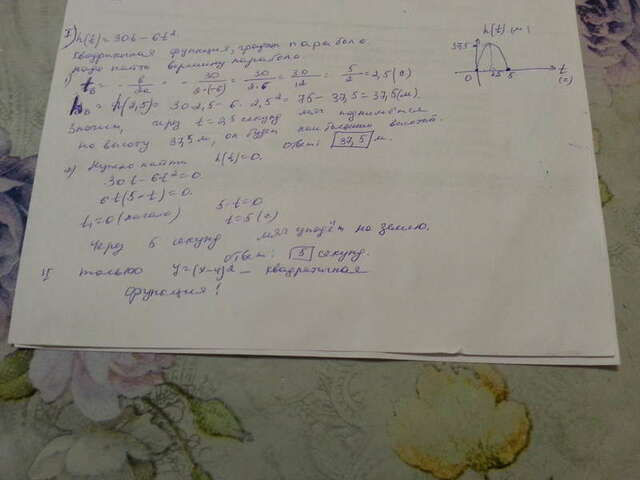 I) h(t) = 30t - 6t².
Квадратичная функция, график парабола.
надо найти вершину параболы.
1) t₀ = - b/2a = - 30/2·(-6) = 30/2·6 = 30/12 = 5/2 = 2,5 (с)
h₀ = h(2,5) = 30·2,5 - 6·2,5² = 75 - 37,5 = 37,5 (м)
Значит, через t = 2,5 секунд мяч поднимется
на высоту 37,5 м, он будет наибольшей высотой.
Ответ: 37,5 м.
2) Нужно найти h(t) = 0.
30t - 6t² = 0
6t(5 - t) = 0.
t₁ = 0 (начало) 5 - t = 0
t = 5 (с)
Через 5 секунд мяч упадёт на землю.
Ответ: 5 секунд.
только y = (x-4)2 — квадратичная
функция!
h(t) (м)
37,5
0 2,5 5 t
(с)